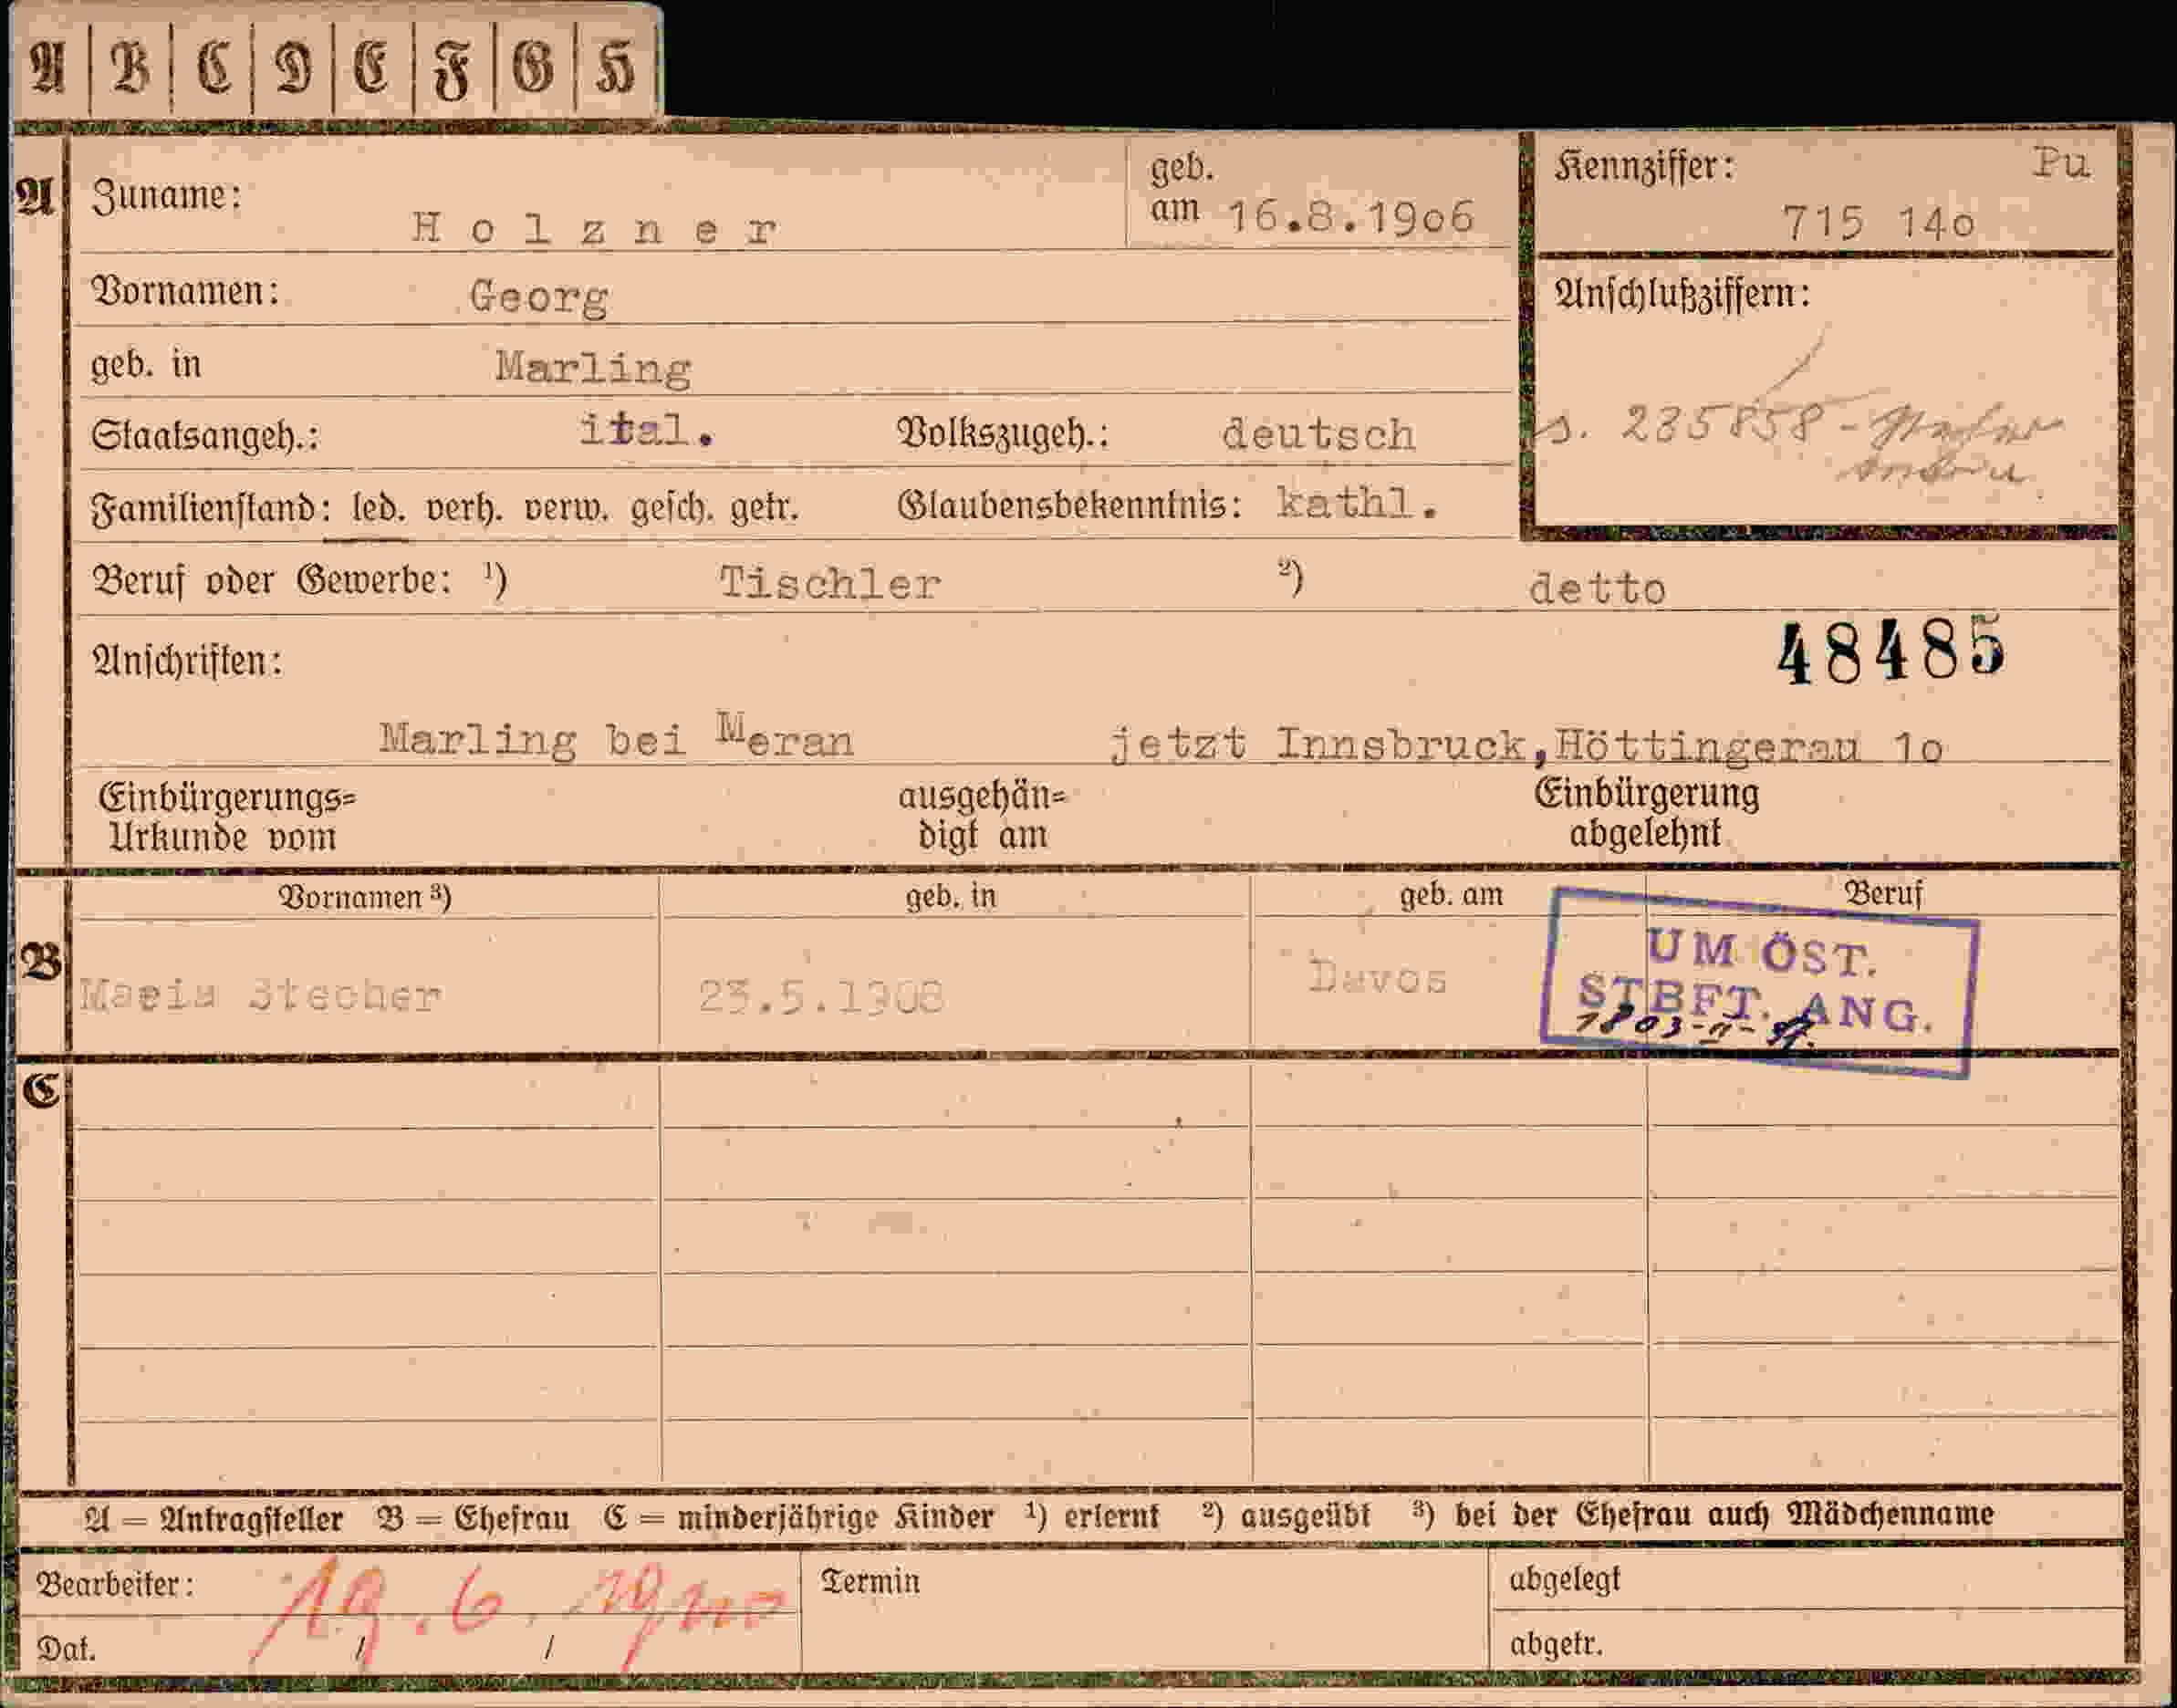 A B C D E F G H
A Zuname: Holzner geb. am 16.8.1906 Kennziffer: Pu 715 140
Vornamen: Georg Anschlußziffern:
geb. in Marling
Staatsangeh.: ital. Volkszugeh.: deutsch s. 235858 -
Familienstand: led. verh. verw. gesch. getr. Glaubensbekenntnis: kathl.
Beruf oder Gewerbe: 1) Tischler 2) detto
Anschriften: 48485
Marling bei Meran jetzt Innsbruck, Höttingerau 10
Einbürgerungs= ausgehän= Einbürgerung
Urkunde vom digt am abgelehnt
Vornamen 3) geb. in geb. am Beruf
B Maria Stecher 23.5.1908 Davos
UM ÖST.
STBFT. ANG.
C
A = Antragsteller B = Ehefrau C = minderjährige Kinder 1) erlernt 2) ausgeübt 3) bei der Ehefrau auch Mädchenname
Bearbeiter: 19.6. Termin abgelegt
Dat. / / abgetr.